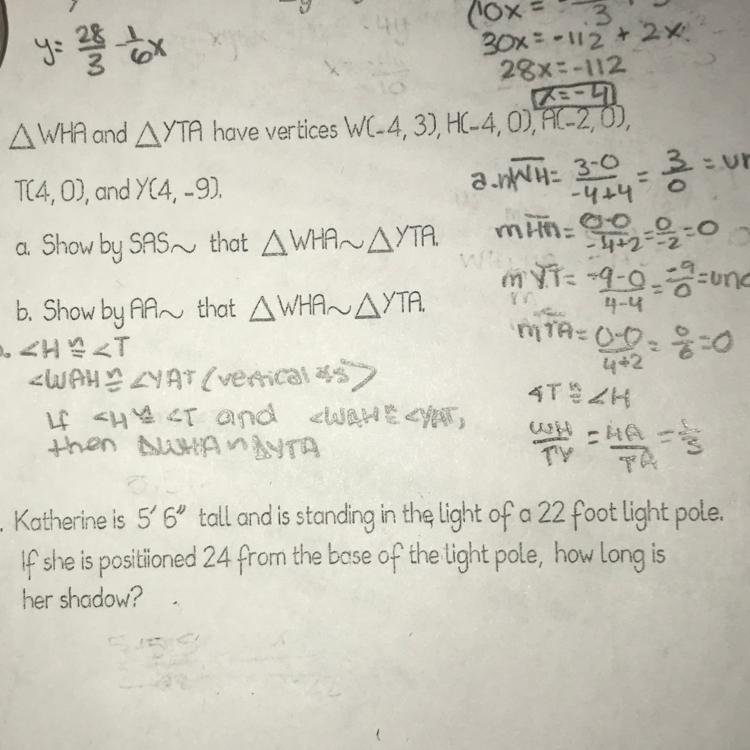 y = 28/3 - 1/6x
10x =
3
30x = -112 + 2x
28x = -112
x = -4
△WHA and △YTA have vertices W(-4, 3), H(-4, 0), A(-2, 0),
T(4, 0), and Y(4, -9).
a. Show by SAS~ that △WHA~△YTA.
b. Show by AA~ that △WHA~△YTA.
a. mWH = 3-0/-4+4 = 3/0 = un
mHA = 0-0/-4+2 = 0/-2 = 0
mYT = -9-0/4-4 = -9/0 = und
mTA = 0-0/4+2 = 0/6 = 0
∢T ≅ <H
WH/TY = HA/TA = 1/3
b. <H ≅ <T
<WAH ≅ <YAT (vertical ∢s)
If <H ≅ <T and <WAH ≅ <YAT,
then △WHA ~ △YTA
. Katherine is 5' 6" tall and is standing in the light of a 22 foot light pole.
If she is positiioned 24 from the base of the light pole, how long is
her shadow?